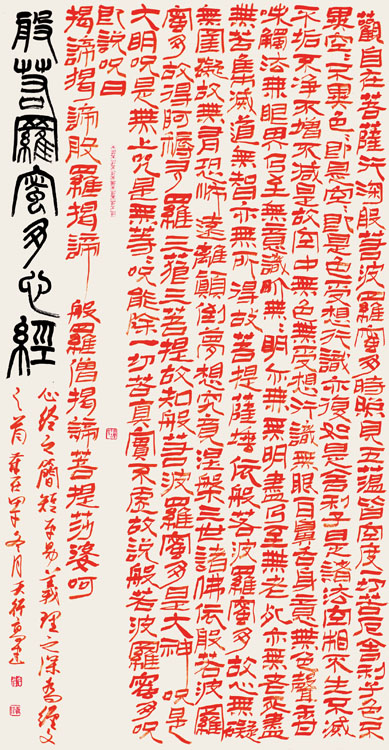 觀自在菩薩行深般若波羅蜜多時照見五蘊皆空度一切苦厄舍利子色不
異空空不異色色即是空空即是色受想行識亦復如是舍利子是諸法空相不生不滅
不垢不淨不增不減是故空中無色無受想行識無眼耳鼻舌身意無色聲香
味觸法無眼界乃至無意識界無無明亦無無明盡乃至無老死亦無老死盡
無苦集滅道無智亦無所得故菩提薩埵依般若波羅蜜多故心無礙
無罣礙故無有恐怖遠離顛倒夢想究竟涅槃三世諸佛依般若波羅
蜜多故得阿耨多羅三藐三菩提故知般若波羅蜜多是大神咒是
大明咒是無上咒是無等等咒能除一切苦真實不虛故說般若波羅蜜多咒
即說咒曰
揭諦揭諦般羅揭諦 般羅僧揭諦菩提莎婆呵
般若羅蜜多心經
心經之簡短平易義理之深為經文
之首 年冬月